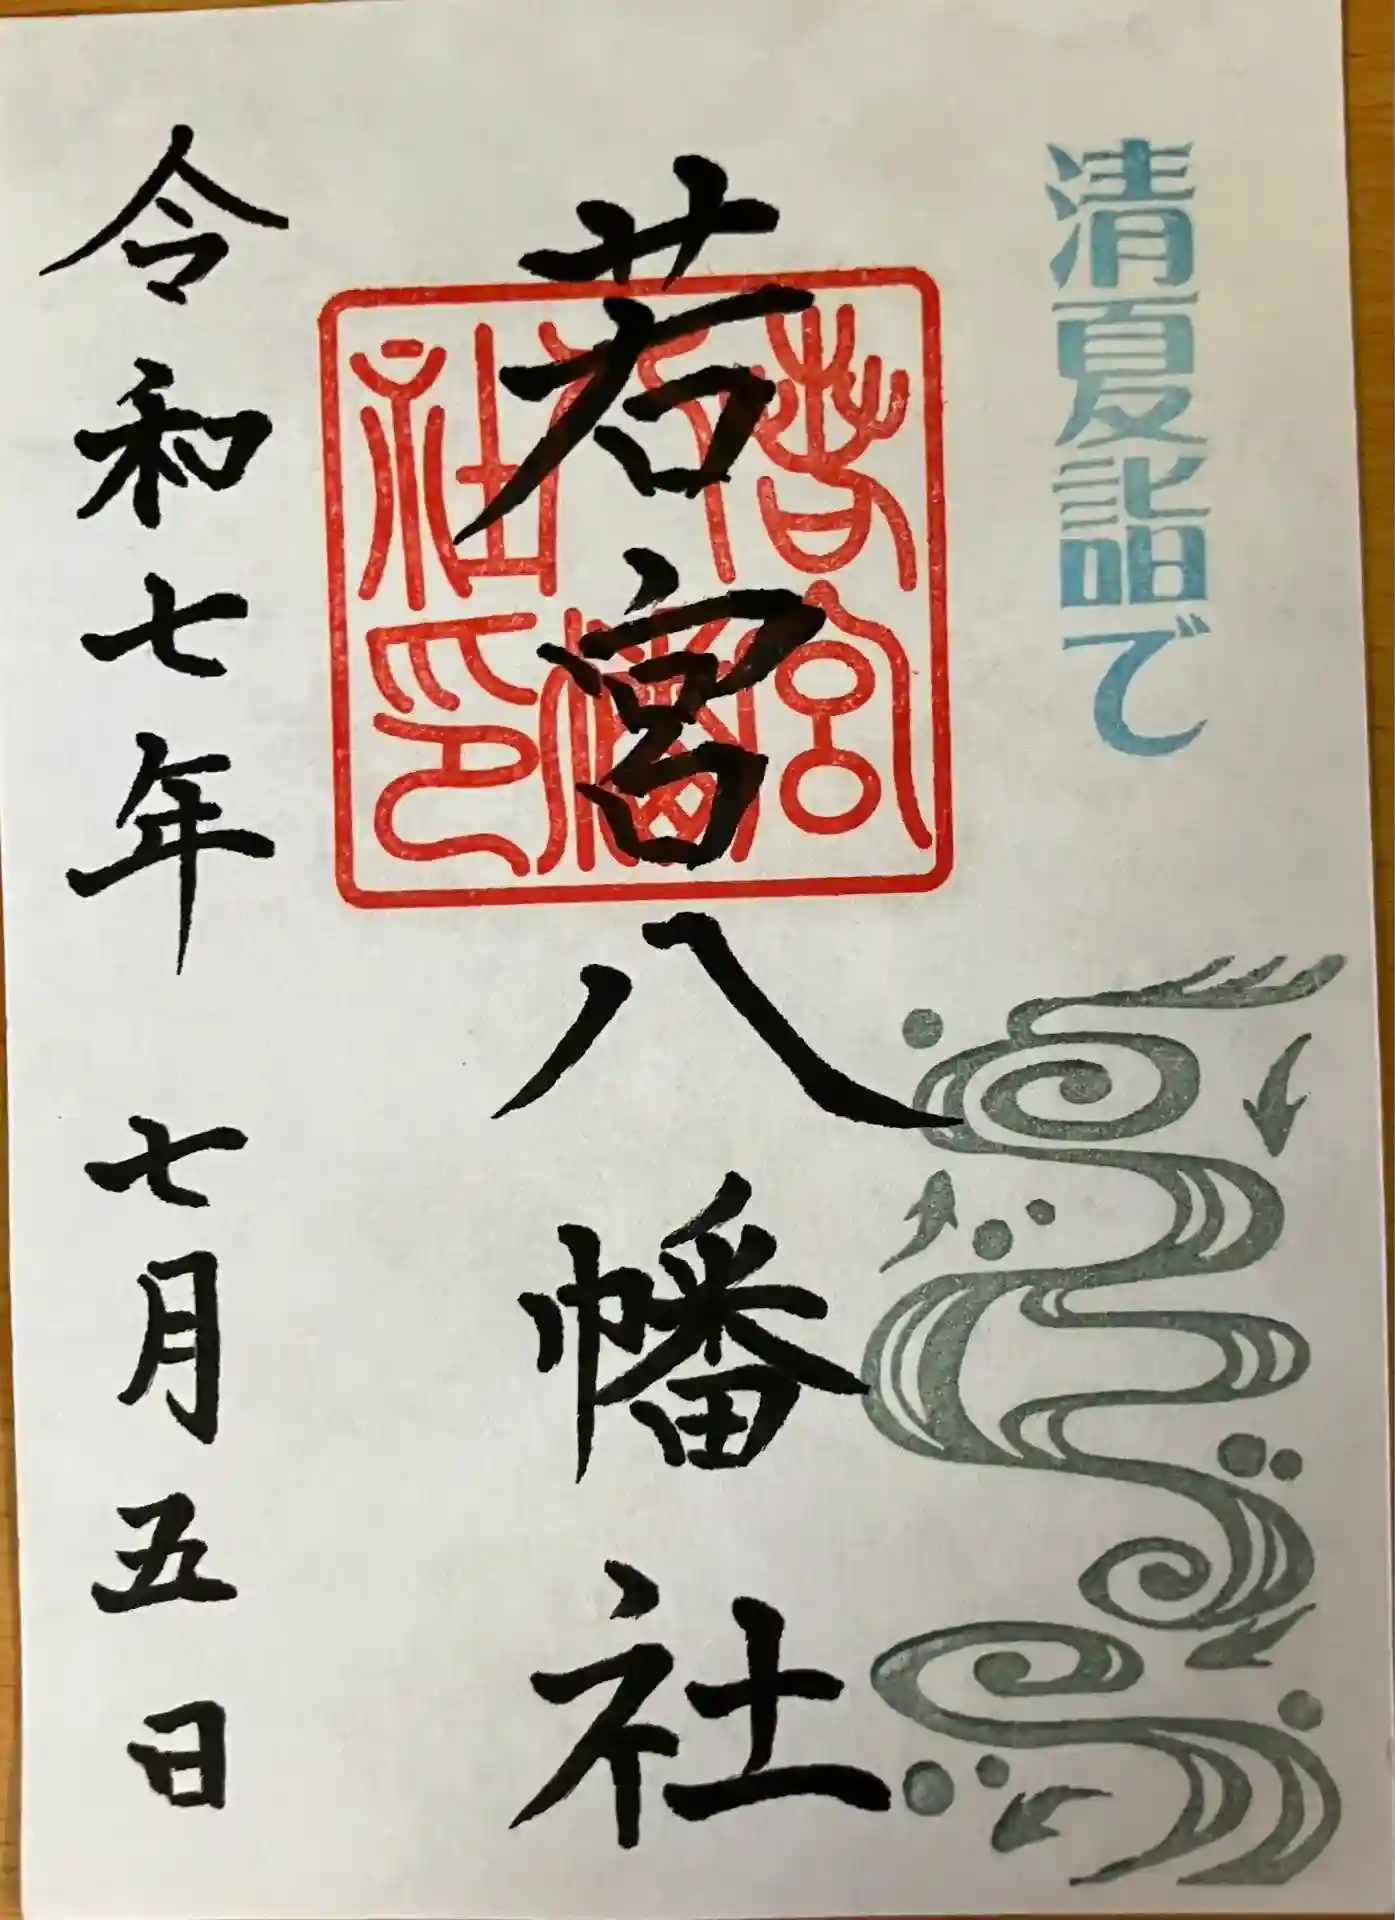 清夏詣で
若宮八幡社
若宮八幡社印
令和七年 七月五日